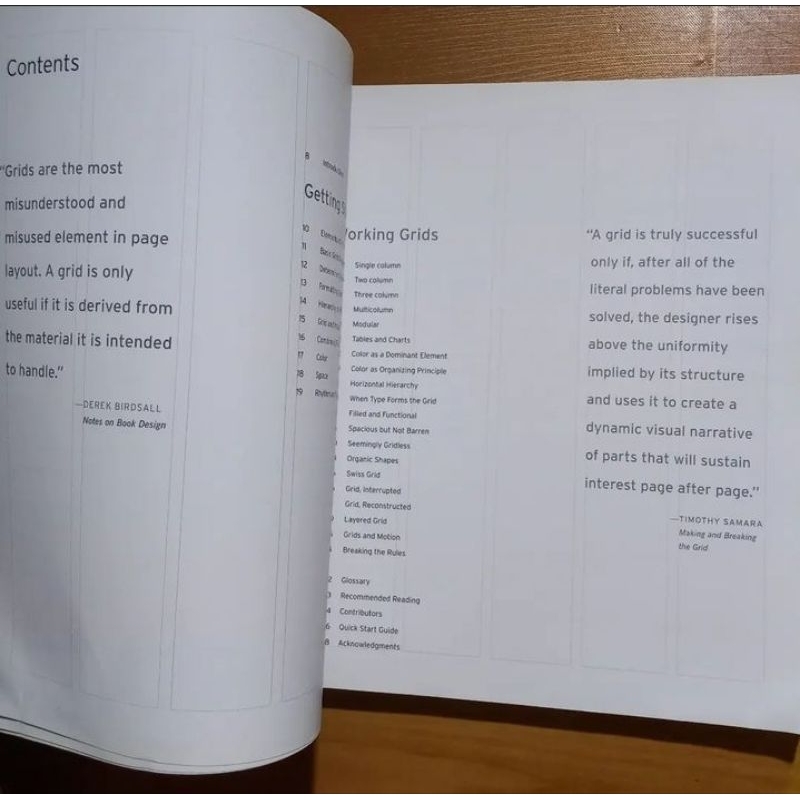 Contents
“Grids are the most
misunderstood and
misused element in page
layout. A grid is only
useful if it is derived from
the material it is intended
to handle.”
—DEREK BIRDSALL
Notes on Book Design
8
Getting
10
11
12
13
14
15
16
17 Color
18 Space
19
orking Grids
Single column
Two column
Three column
Multicolumn
Modular
Tables and Charts
Color as a Dominant Element
Color as Organizing Principle
Horizontal Hierarchy
When Type Forms the Grid
Filled and Functional
Spacious but Not Barren
Seemingly Gridless
Organic Shapes
Swiss Grid
Grid, Interrupted
Grid, Reconstructed
Layered Grid
Grids and Motion
Breaking the Rules
2 Glossary
3 Recommended Reading
4 Contributors
6 Quick Start Guide
8 Acknowledgments
“A grid is truly successful
only if, after all of the
literal problems have been
solved, the designer rises
above the uniformity
implied by its structure
and uses it to create a
dynamic visual narrative
of parts that will sustain
interest page after page.”
—TIMOTHY SAMARA
Making and Breaking
the Grid